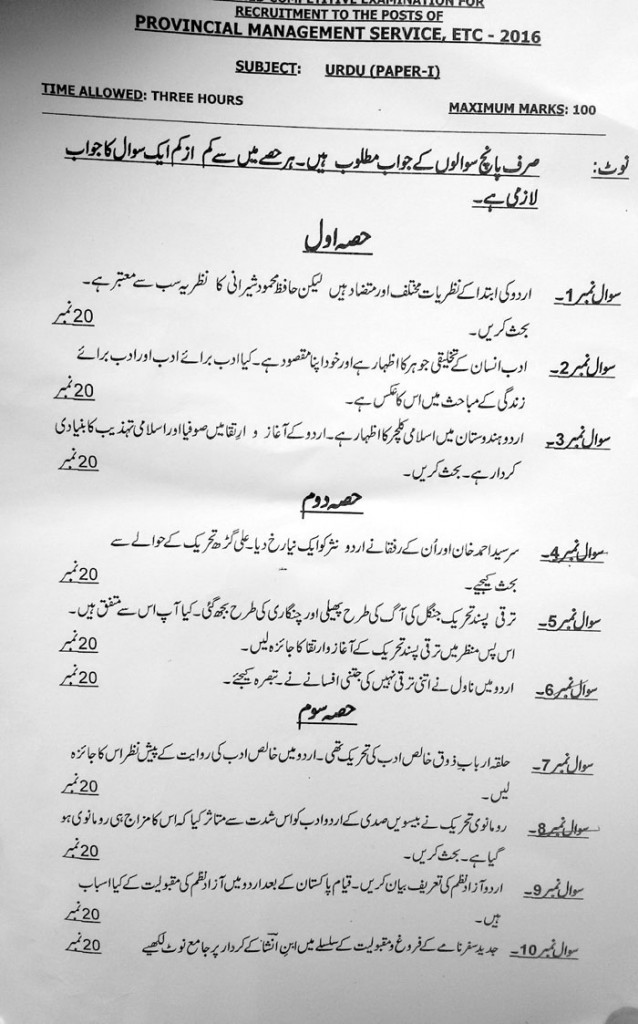 COMPETITIVE EXAMINATION FOR
RECRUITMENT TO THE POSTS OF
PROVINCIAL MANAGEMENT SERVICE, ETC - 2016
SUBJECT: URDU (PAPER-I)
TIME ALLOWED: THREE HOURS
MAXIMUM MARKS: 100
نوٹ: صرف پانچ سوالوں کے جواب مطلوب ہیں۔ ہر حصے میں سے کم از کم ایک سوال کا جواب
لازمی ہے۔
حصہ اول
سوال نمبر 1۔ اردو کی ابتدا کے نظریات مختلف اور متضاد ہیں لیکن حافظ محمود شیرانی کا نظریہ سب سے معتبر ہے۔
بحث کریں۔ 20 نمبر
سوال نمبر 2۔ ادب انسان کے تخلیقی جوہر کا اظہار ہے اور خود اپنا مقصود ہے۔ کیا ادب برائے ادب اور ادب برائے
زندگی کے مباحث میں اس کا عکس ہے۔ 20 نمبر
سوال نمبر 3۔ اردو ہندوستان میں اسلامی کلچر کا اظہار ہے۔ اردو کے آغاز و ارتقا میں صوفیا اور اسلامی تہذیب کا بنیادی
کردار ہے۔ بحث کریں۔ 20 نمبر
حصہ دوم
سوال نمبر 4۔ سرسید احمد خان اور اُن کے رفقا نے اردو نثر کو ایک نیا رخ دیا۔ علی گڑھ تحریک کے حوالے سے
بحث کیجیے۔ 20 نمبر
سوال نمبر 5۔ ترقی پسند تحریک جنگل کی آگ کی طرح پھیلی اور چنگاری کی طرح بجھ گئی۔ کیا آپ اس سے متفق ہیں۔
اس پس منظر میں ترقی پسند تحریک کے آغاز و ارتقا کا جائزہ لیں۔ 20 نمبر
سوال نمبر 6۔ اردو میں ناول نے اتنی ترقی نہیں کی جتنی افسانے نے۔ تبصرہ کیجئے۔ 20 نمبر
حصہ سوم
سوال نمبر 7۔ حلقہ ارباب ذوق خالص ادب کی تحریک تھی۔ اردو میں خالص ادب کی روایت کے پیش نظر اس کا جائزہ
لیں۔ 20 نمبر
سوال نمبر 8۔ رومانوی تحریک نے بیسویں صدی کے اردو ادب کو اس شدت سے متاثر کیا کہ اس کا مزاج ہی رومانوی ہو
گیا ہے۔ بحث کریں۔ 20 نمبر
سوال نمبر 9۔ اردو آزاد نظم کی تعریف بیان کریں۔ قیام پاکستان کے بعد اردو میں آزاد نظم کی مقبولیت کے کیا اسباب
ہیں۔ 20 نمبر
سوال نمبر 10۔ جدید سفر نامے کے فروغ و مقبولیت کے سلسلے میں ابن انشا کے کردار پر جامع نوٹ لکھیے 20 نمبر